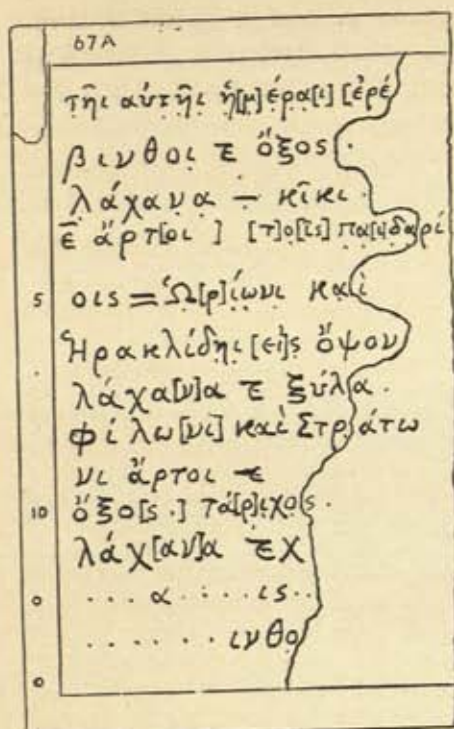 67A
τῆι αὐτῆι ἡ[μ]έρα[ι] [ἐρέ
βινθοι ϛ ὄξος .
λάχανα – κῖκι .
ε̄ ἄρτ[οι ] [τ]ο[ῖς] πα[ι]δαρί
5 οις = Ὠ[ρ]ίωνι καὶ
Ἡρακλίδηι [εἰ]ς ὄψον
λάχα[ν]α ϛ ξύλα .
φίλω[νι] καὶ Στράτω
νι ἄρτοι
10 ὄξο[ς .] τά[ρ]ιχος .
λάχ[αν]α χ
0 . . . α . . . . ις . .
. . . . . . ινθο
0